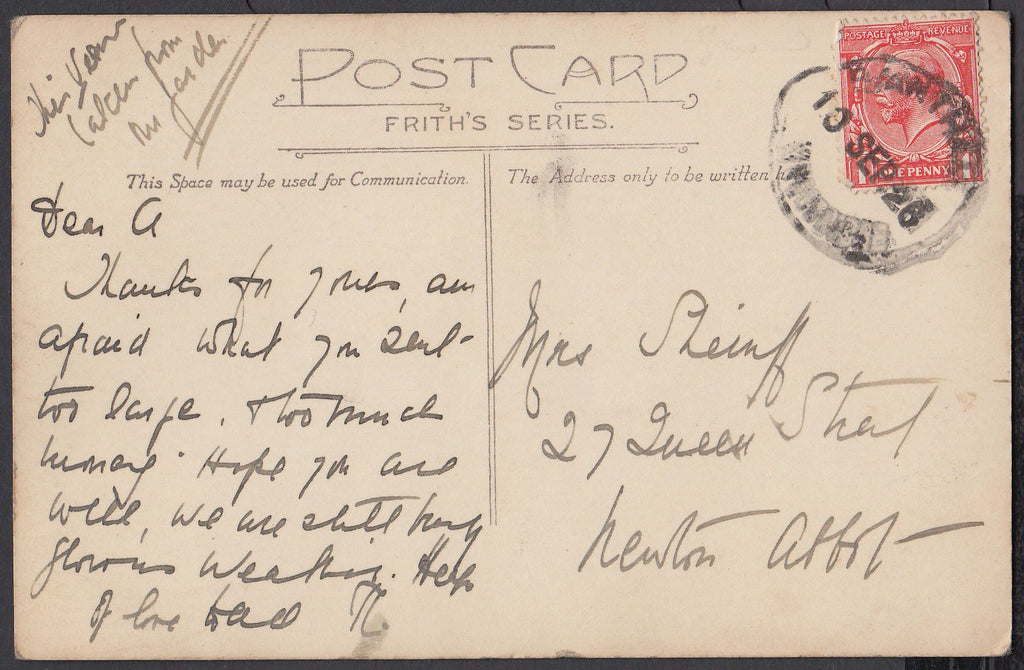 This view
taken from
our garden
POST CARD
FRITH'S SERIES.
This Space may be used for Communication.
The Address only to be written h
POSTAGE REVENUE
ONE PENNY
10 SEP 26
Dear A
Thanks for yours, am
afraid what you sent
too large. & too much
money. Hope you are
well, we are still busy
glorious weather. Heaps
of love to all N.
Mrs Sheinff
27 Queen Street
Newton Abbot